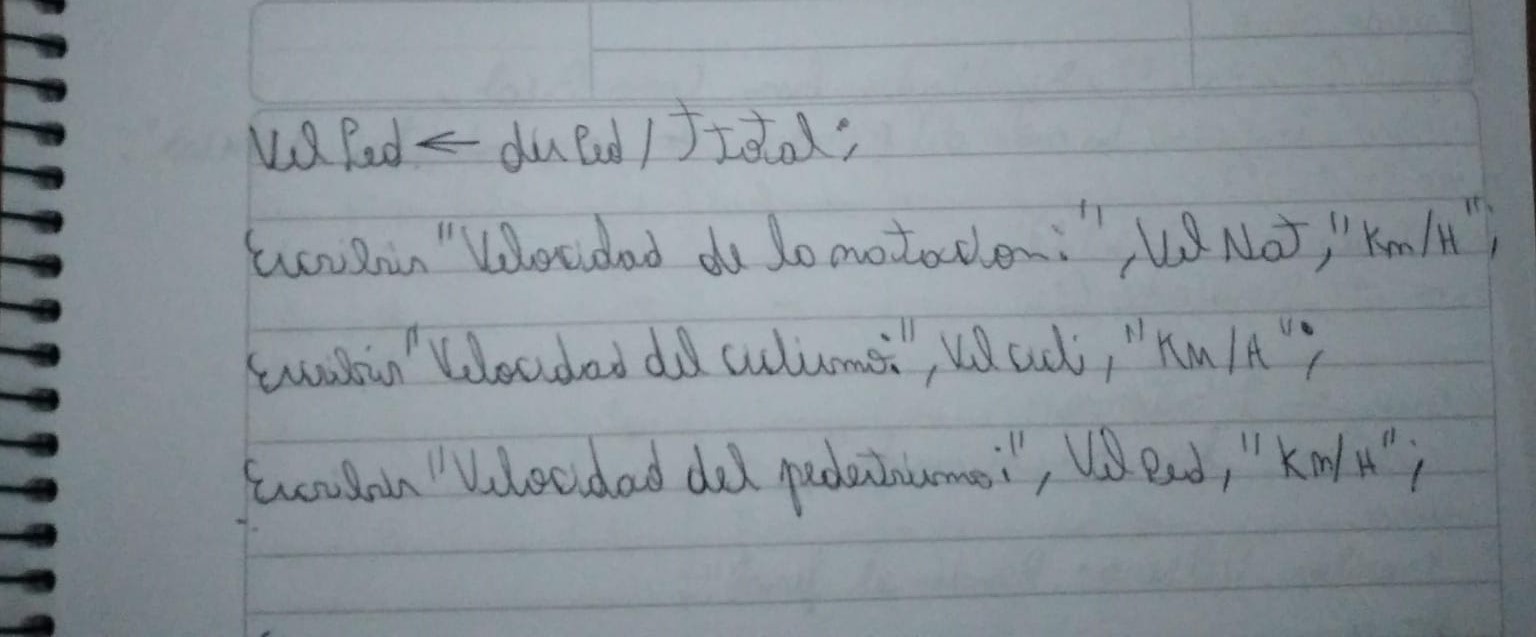 VelPed ← disPed / Ttotal;
Escribir "Velocidad de la natacion:", VelNat, "Km/H";
Escribir "Velocidad del ciclismo:", Velcicli, "Km/H";
Escribir "Velocidad del pedestrismo:", VelPed, "Km/H";